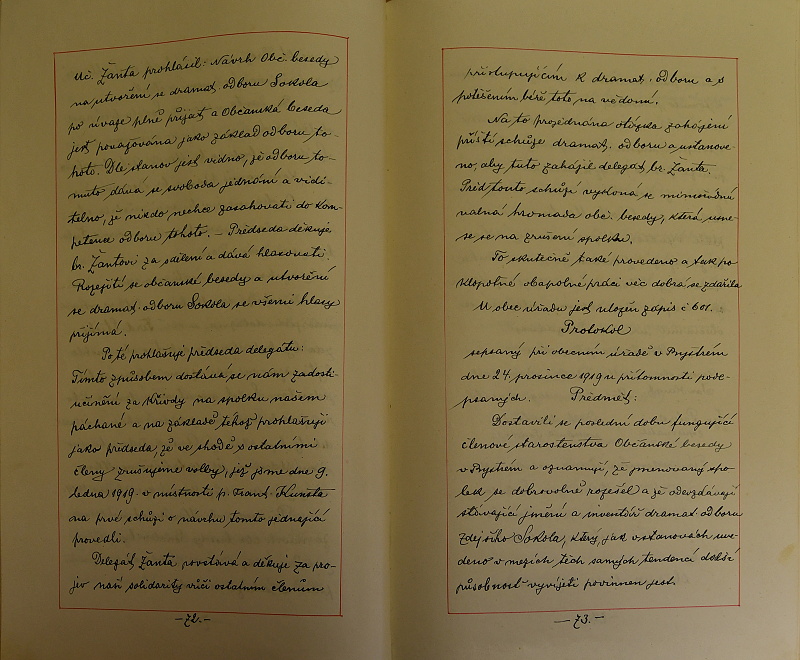 Uč. Žanta prohlásil: Návrh Obč. besedy
na utvoření se dramat. odboru Sokola
po úvaze plně přijat a Občanská beseda
jest považována jako základ odboru to-
hoto. Dle stanov jest vidno, že odboru to-
muto dává se svoboda jednání a vidi-
telno, že nikdo nechce zasahovati do kom-
petence odboru tohoto. – Předseda děkuje
br. Žantovi za sdělení a dává hlasovati.
Rozejití se občanské besedy a utvoření
se dramat. odboru Sokola se všemi hlasy
přijímá.
Po té prohlašuje předseda delegátu:
Tímto způsobem dostává se nám zadosti-
učinění za křivdy na spolku našem
páchané a na základě tohož prohlašuji
jako předseda, že ve shodě s ostatními
členy zrušujeme volby, jež jsme dne 9.
ledna 1919 v místnosti p. Frant. Kunsta
na prvé schůzi o návrhu tomto jednající
provedli.
Delegát Žanta povstává a děkuje za pro-
jev naší solidarity vůči ostatním členům
– 72. –
přistupujícím k dramat. odboru a s
potěšením béře toto na vědomí.
Na to projednána otázka zahájení
příští schůze dramat. odboru a ustanove-
no, aby tuto zahájil delegát, br. Žanta.
Před touto schůzí vykoná se mimořádná
valná hromada obč. besedy, která usne-
se se na zrušení spolku.
To skutečně také provedeno a tak po
klopotné obapolné práci věc dobrá se zdařila
U obec. úřadu jest uložen zápis č 601.
Protokol
sepsaný při obecním úřadě v Bystrém
dne 24. prosince 1919 u přítomnosti pode-
psaných. Předmět:
Dostavili se poslední dobu fungující
členové starostenstva Občanské besedy
v Bystrém a oznamují, že jmenovaný spo-
lek se dobrovolně rozešel a že odevzdávají
stávající jmění a inventář dramat. odboru
zdejšího Sokola, který, jak v stanovách uve-
deno v mezích těch samých tendencí další
působnost vyvíjeti povinnen jest.
– 73. –